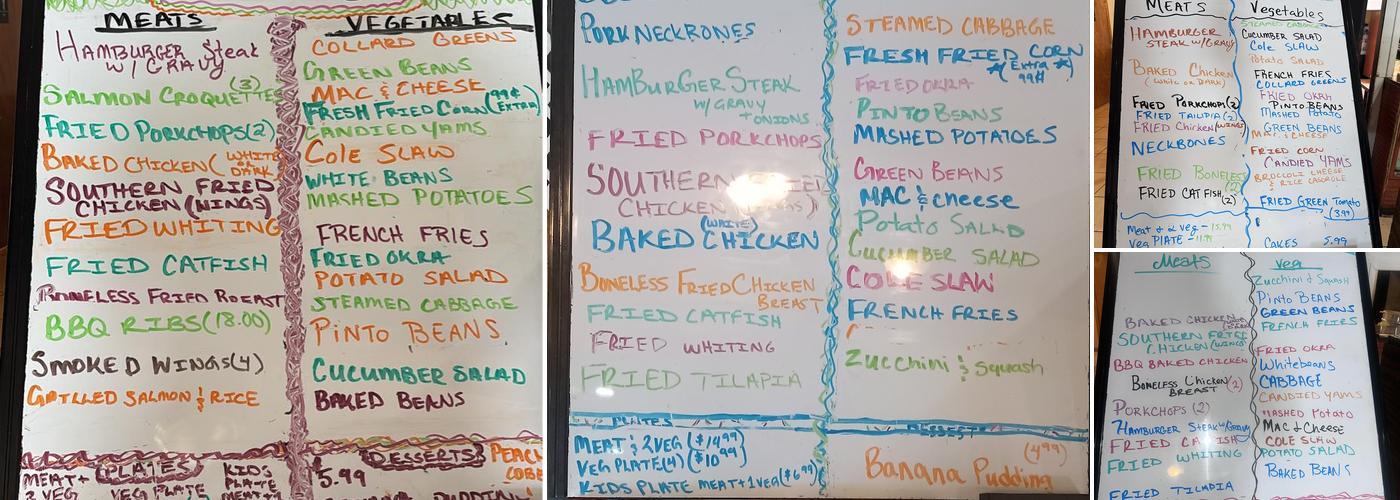 MEATS
HAMBURGER Steak
W/ GRAVY
SALMON CROQUETTES (3)
FRIED PORKCHOPS(2)
BAKED CHICKEN( WHITE
OR
DARK)
SOUTHERN FRIED
CHICKEN (WINGS)
FRIED WHITING
FRIED CATFISH
BONELESS FRIED BREAST
BBQ RIBS(18.00)
SMOKED WINGS(4)
GRILLED SALMON & RICE
VEGETABLES
COLLARD GREENS
GREEN BEANS
MAC & CHEESE
FRESH FRIED CORN (99¢ EXTRA)
CANDIED YAMS
COLE SLAW
WHITE BEANS
MASHED POTATOES
FRENCH FRIES
FRIED OKRA
POTATO SALAD
STEAMED CABBAGE
PINTO BEANS
CUCUMBER SALAD
BAKED BEANS
PLATES
MEAT+
2 VEG
VEG PLATE
KIDS
PLATE
MEAT+1
$5.99
DESSERTS
PEACH
PORK NECKBONES
HAMBURGER STEAK
W/ GRAVY
+ ONIONS
FRIED PORKCHOPS
SOUTHERN FRIED
CHICKEN
BAKED CHICKEN (WHITE)
BONELESS FRIED CHICKEN
BREAST
FRIED CATFISH
FRIED WHITING
FRIED TILAPIA
STEAMED CABBAGE
FRESH FRIED CORN
(Extra
99¢)
FRIED OKRA
PINTO BEANS
MASHED POTATOES
GREEN BEANS
MAC & cheese
Potato SALAD
CUCUMBER SALAD
COLE SLAW
FRENCH FRIES
Zucchini & Squash
PLATES
MEAT & 2 VEG ($14.99)
VEG PLATE(4) ($10.99)
KIDS PLATE MEAT+1 veg($6.99)
DESSERTS
(4.99)
Banana Pudding
MEATS
HAMBURGER
STEAK W/GRAVY
BAKED Chicken
(White or DARK)
FRIED PORKCHOP(2)
FRIED TAILPIA(2)
FRIED Chicken(WINGS)
NECKBONES
FRIED BONELESS
(2)
FRIED CATFISH(2)
Meat & 2 veg - 15.99
Veg PLATE - 11.99
Vegetables
STEAMED CABBAGE
CUCUMBER SALAD
Cole SLAW
Potato SALAD
FRENCH FRIES
COLLARD GREENS
FRIED OKRA
PINTO BEANS
MASHED Potato
GREEN BEANS
MAC & CHEESE
FRIED CORN
CANDIED YAMS
BROCCOLI CHEESE
& RICE CASSROLE
FRIED GREEN Tomato
(3.99)
CAKES 5.99
Meats
BAKED CHICKEN
SOUTHERN FRIED
CHICKEN (WINGS)
BBQ BAKED CHICKEN
BONELESS Chicken (2)
BREAST
PORKCHOPS (2)
HAMBURGER STEAK W/GRAVY
FRIED CATFISH
FRIED WHITING
FRIED TILAPIA
Veg
Zucchini & Squash
PINTO BEANS
GREEN BEANS
FRENCH FRIES
FRIED OKRA
White beans
CABBAGE
CANDIED YAMS
MASHED Potato
MAC & Cheese
COLE SLAW
POTATO SALAD
BAKED BEANS